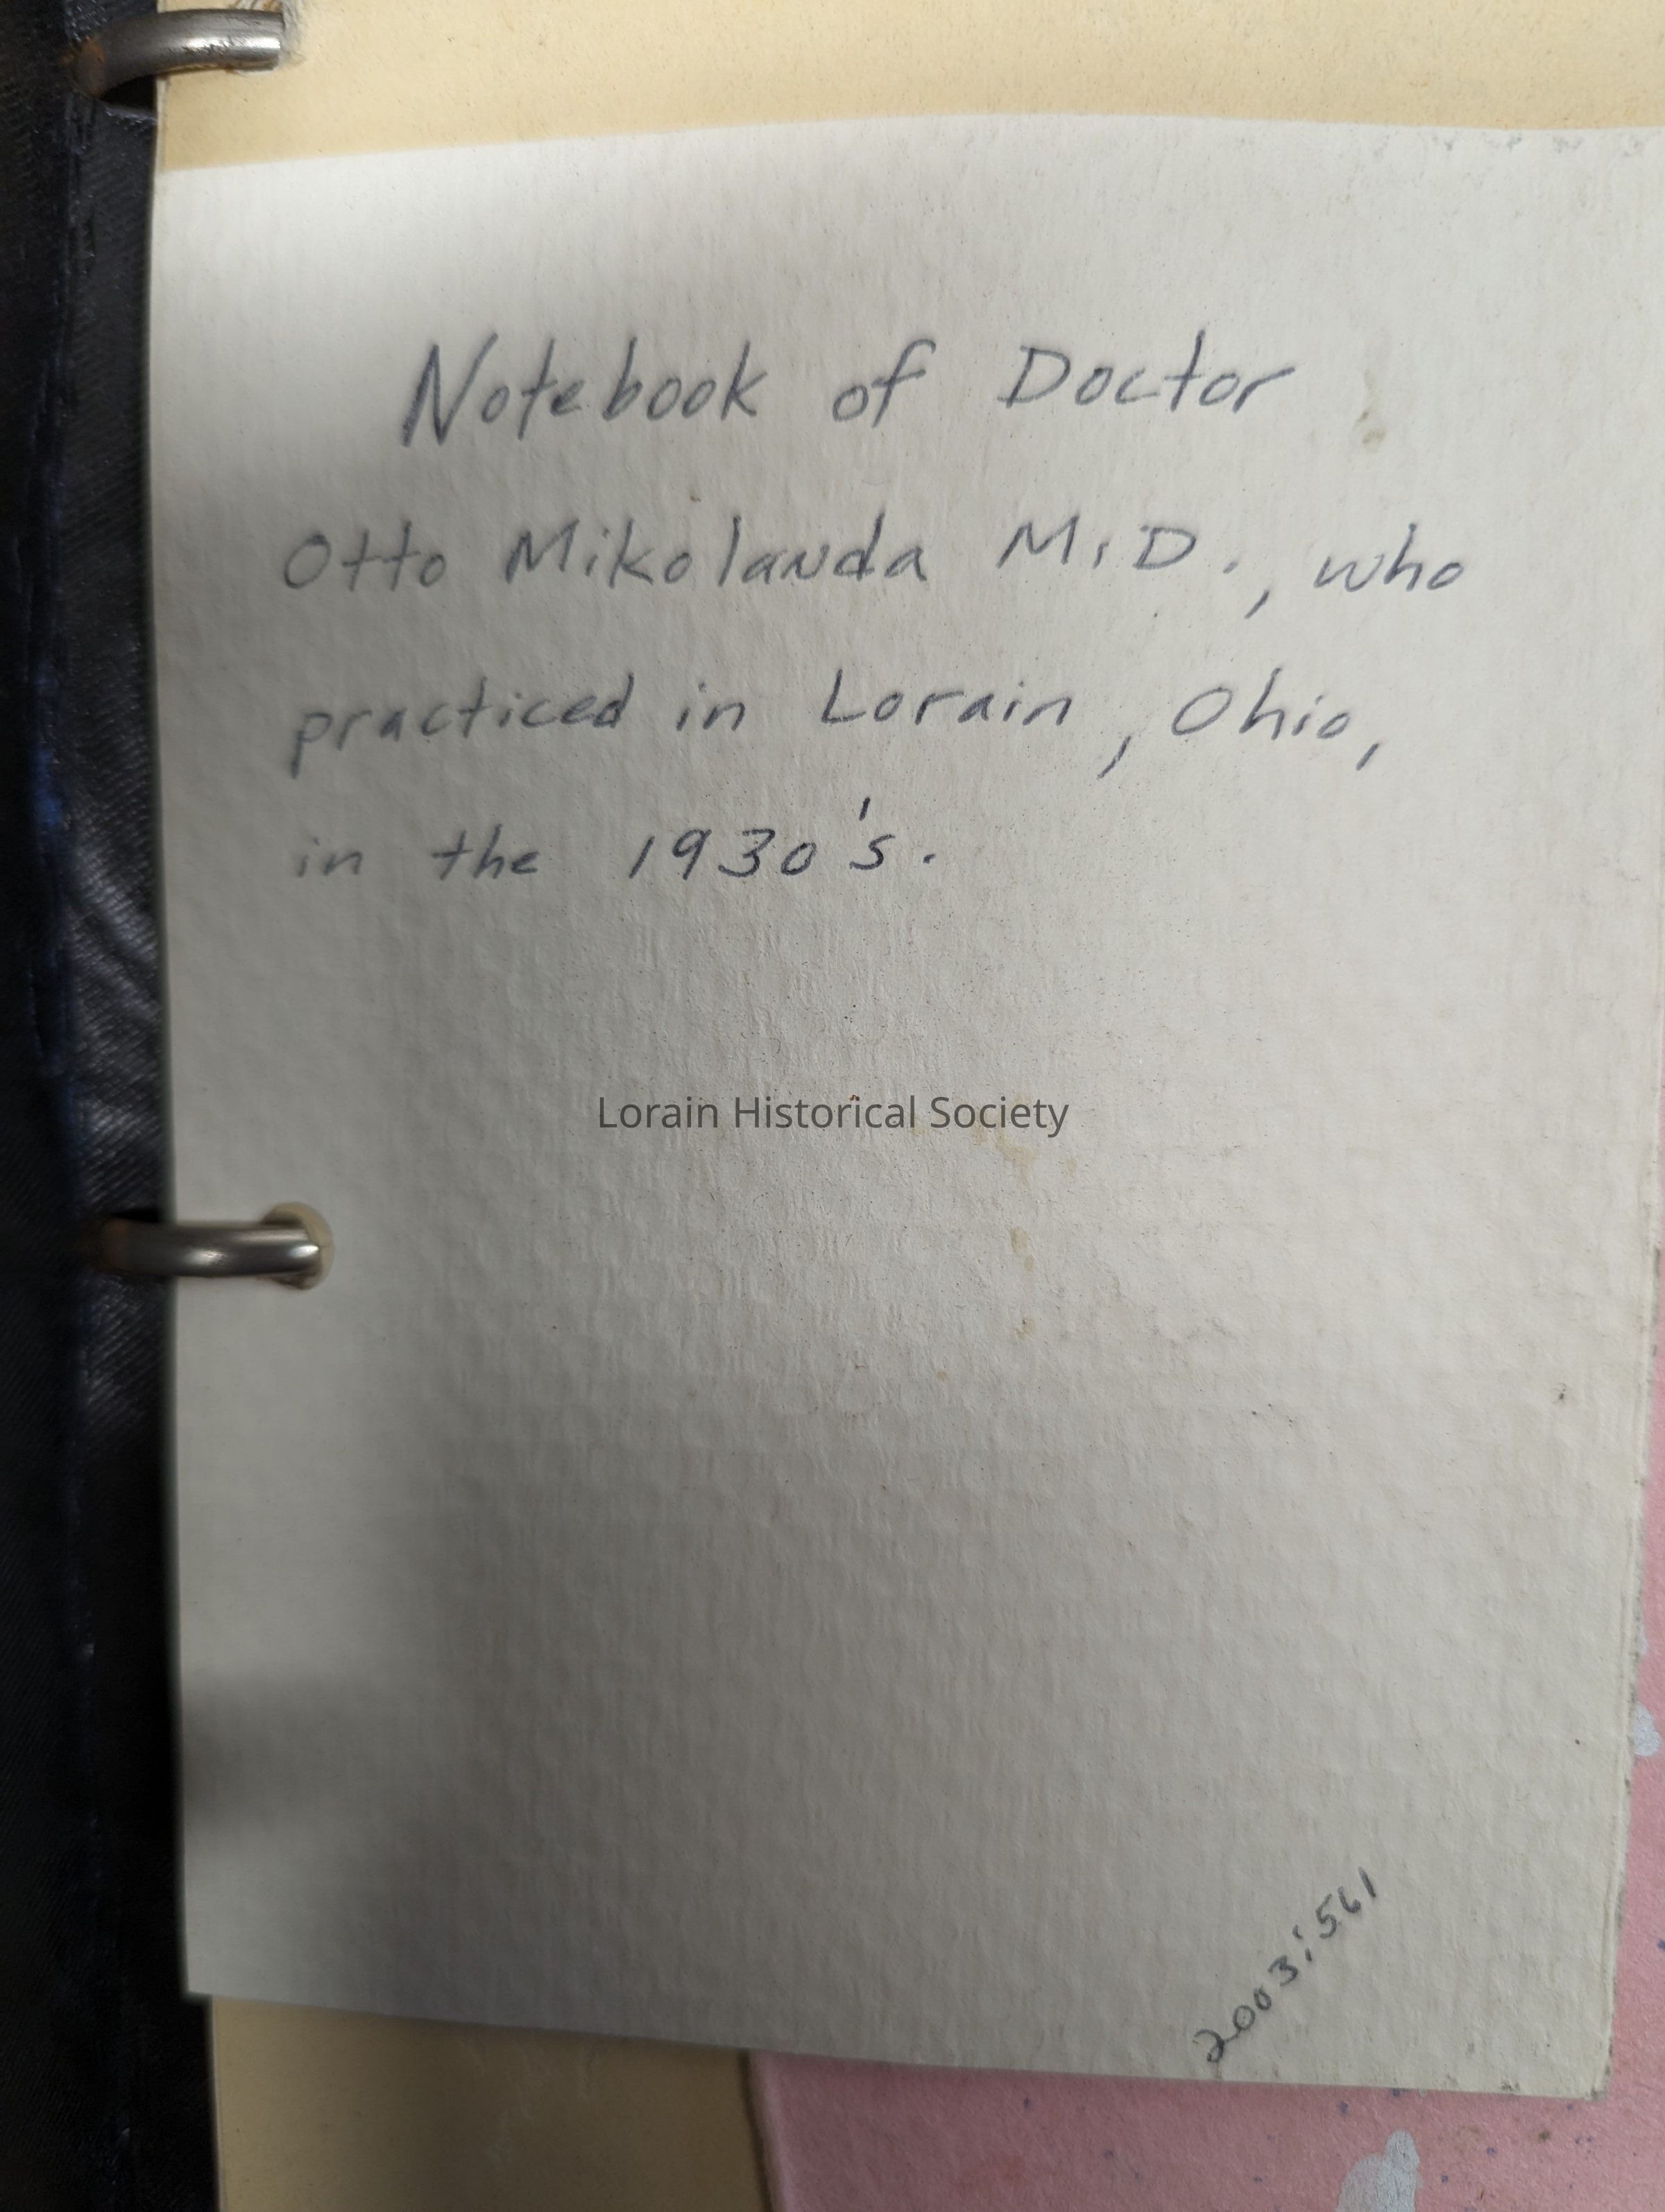 Notebook of Doctor
Otto Mikolanda M.D., who
practiced in Lorain, Ohio,
in the 1930's.
Lorain Historical Society
2003:561